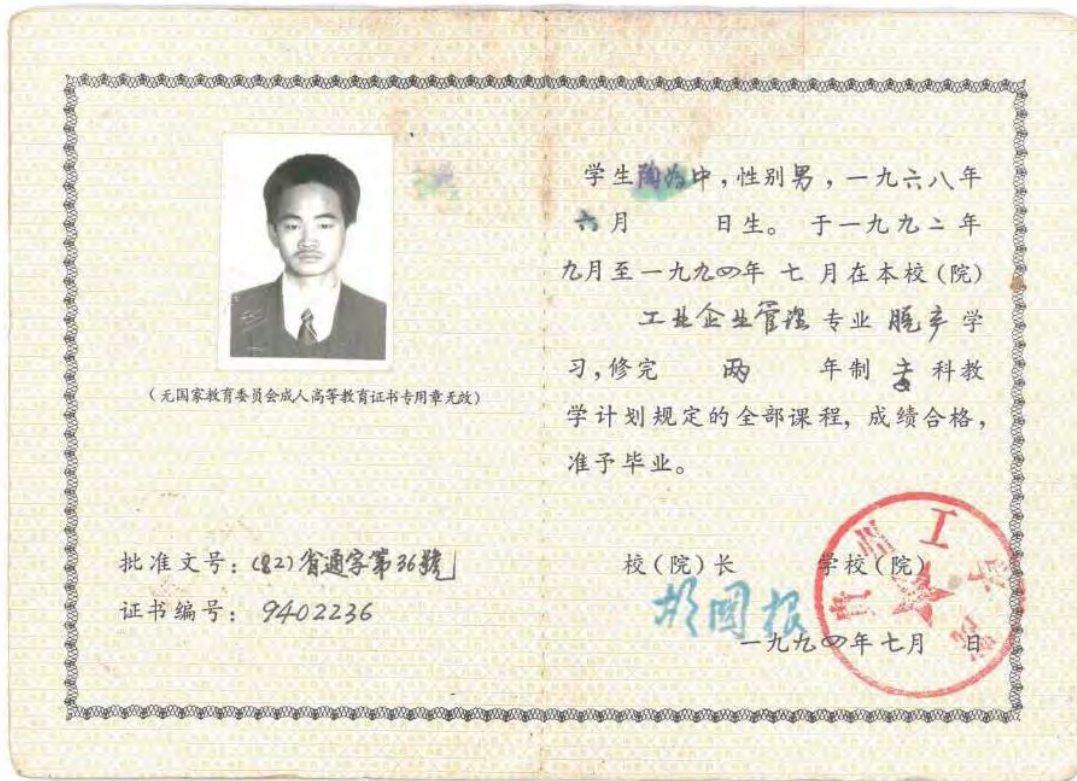 (无国家教育委员会成人高等教育证书专用章无效)
批准文号：(82)省通字第36號
证书编号：9402236
学生陶为中，性别男，一九六八年
六月 日生。于一九九二年
九月至一九九四年 七 月在本校(院)
工业企业管理 专业 脱产 学
习，修完 两 年制 专 科教
学计划规定的全部课程，成绩合格，
准予毕业。
校(院)长 学校(院)
贵州工学院
一九九四年七月 日